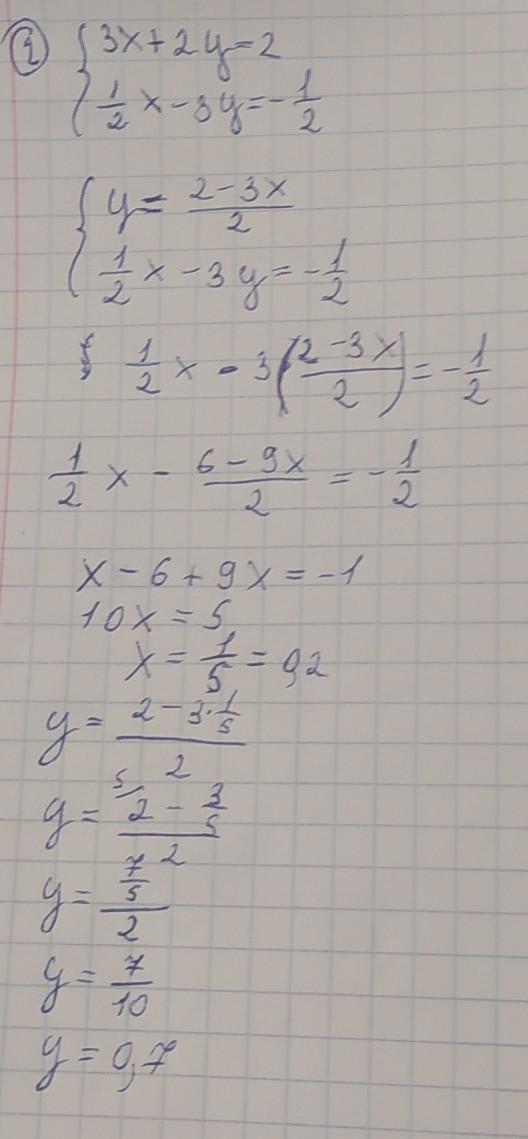 1) { 3x + 2y = 2
{ 1/2 x - 3y = - 1/2
{ y = (2 - 3x)/2
{ 1/2 x - 3y = - 1/2
1/2 x - 3((2 - 3x)/2) = - 1/2
1/2 x - (6 - 9x)/2 = - 1/2
x - 6 + 9x = -1
10x = 5
x = 1/5 = 0,2
y = (2 - 3·1/5)/2
y = (5/ 2 - 3/5)/2
y = (7/5)/2
y = 7/10
y = 0,7